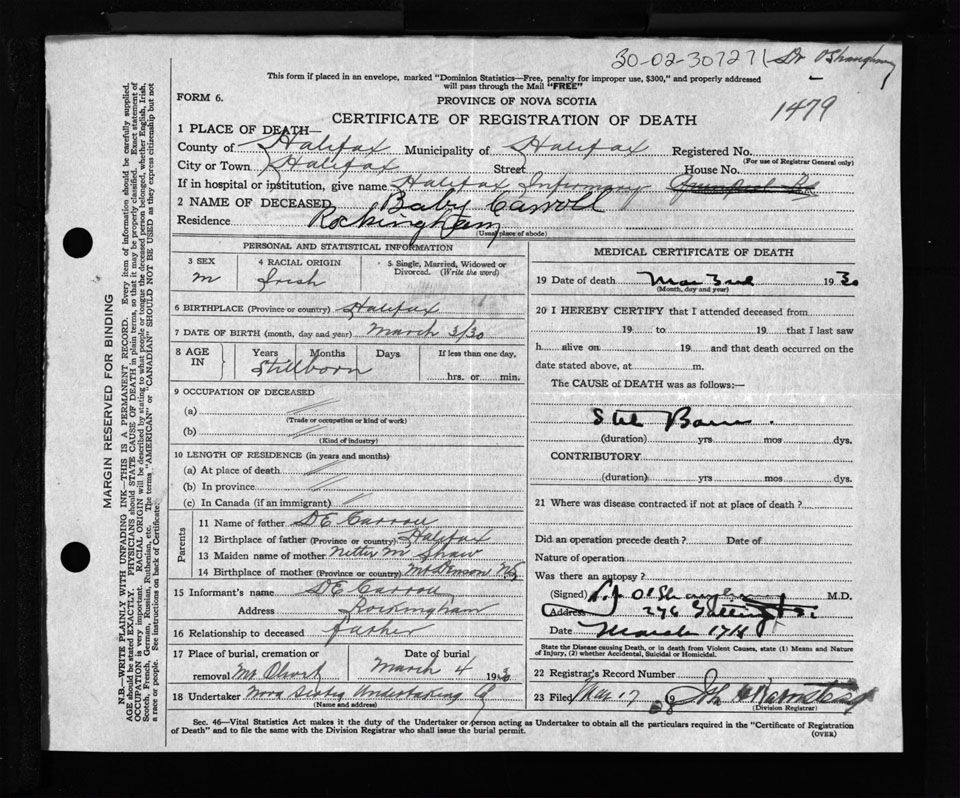 30-02-307271 Dr O'Shaughnessy
This form if placed in an envelope, marked "Dominion Statistics—Free, penalty for improper use, $300," and properly addressed
will pass through the Mail "FREE"
FORM 6.
PROVINCE OF NOVA SCOTIA
1479
CERTIFICATE OF REGISTRATION OF DEATH
1 PLACE OF DEATH—
County of Halifax Municipality of Halifax Registered No.
(For use of Registrar General only)
City or Town Halifax Street House No.
If in hospital or institution, give name Halifax Infirmary
2 NAME OF DECEASED Baby Carroll
Residence Rockingham
(Usual place of abode)
PERSONAL AND STATISTICAL INFORMATION
3 SEX 4 RACIAL ORIGIN 5 Single, Married, Widowed or Divorced. (Write the word)
M Irish
6 BIRTHPLACE (Province or country) Halifax
7 DATE OF BIRTH (month, day and year) March 3/30
8 AGE IN Years Months Days If less than one day,
Stillborn hrs. or min.
9 OCCUPATION OF DECEASED
(a)
(Trade or occupation or kind of work)
(b)
(Kind of industry)
10 LENGTH OF RESIDENCE (in years and months)
(a) At place of death
(b) In province
(c) In Canada (if an immigrant)
Parents
11 Name of father D E Carroll
12 Birthplace of father (Province or country) Halifax
13 Maiden name of mother M Shaw
14 Birthplace of mother (Province or country) Mt Denson NS
15 Informant's name D E Carroll
Address Rockingham
16 Relationship to deceased father
17 Place of burial, cremation or removal Mt Olivet Date of burial March 4 1930
18 Undertaker Nova Scotia Undertaking Co
(Name and address)
MEDICAL CERTIFICATE OF DEATH
19 Date of death Mar 3rd 1930
(Month, day and year)
20 I HEREBY CERTIFY that I attended deceased from
19 to 19 that I last saw
h alive on 19 and that death occurred on the
date stated above, at m.
The CAUSE of DEATH was as follows:—
Still Born.
(duration) yrs mos dys.
CONTRIBUTORY
(duration) yrs mos dys.
21 Where was disease contracted if not at place of death?
Did an operation precede death? Date of
Nature of operation
Was there an autopsy?
(Signed) M.D.
Address 276
Date March 17th
State the Disease causing Death, or in death from Violent Causes, state (1) Means and Nature of Injury, (2) whether Accidental, Suicidal or Homicidal.
22 Registrar's Record Number
23 Filed Mar 17 19
(Division Registrar)
Sec. 46—Vital Statistics Act makes it the duty of the Undertaker or person acting as Undertaker to obtain all the particulars required in the "Certificate of Registration
of Death" and to file the same with the Division Registrar who shall issue the burial permit.
(OVER)
MARGIN RESERVED FOR BINDING
N.B.—WRITE PLAINLY WITH UNFADING INK—THIS IS A PERMANENT RECORD. Every item of information should be carefully supplied.
AGE should be stated EXACTLY. PHYSICIANS should STATE CAUSE OF DEATH in plain terms, so that it may be properly classified. Exact statement of
OCCUPATION is very important. RACIAL ORIGIN will be described by stating to what people or tongue the deceased person belonged, whether English, Irish,
Scotch, French, German, Russian, Ruthenian, etc. The terms "AMERICAN" or "CANADIAN" SHOULD NOT BE USED as they express citizenship but not
a race or people. See instructions on back of Certificate.